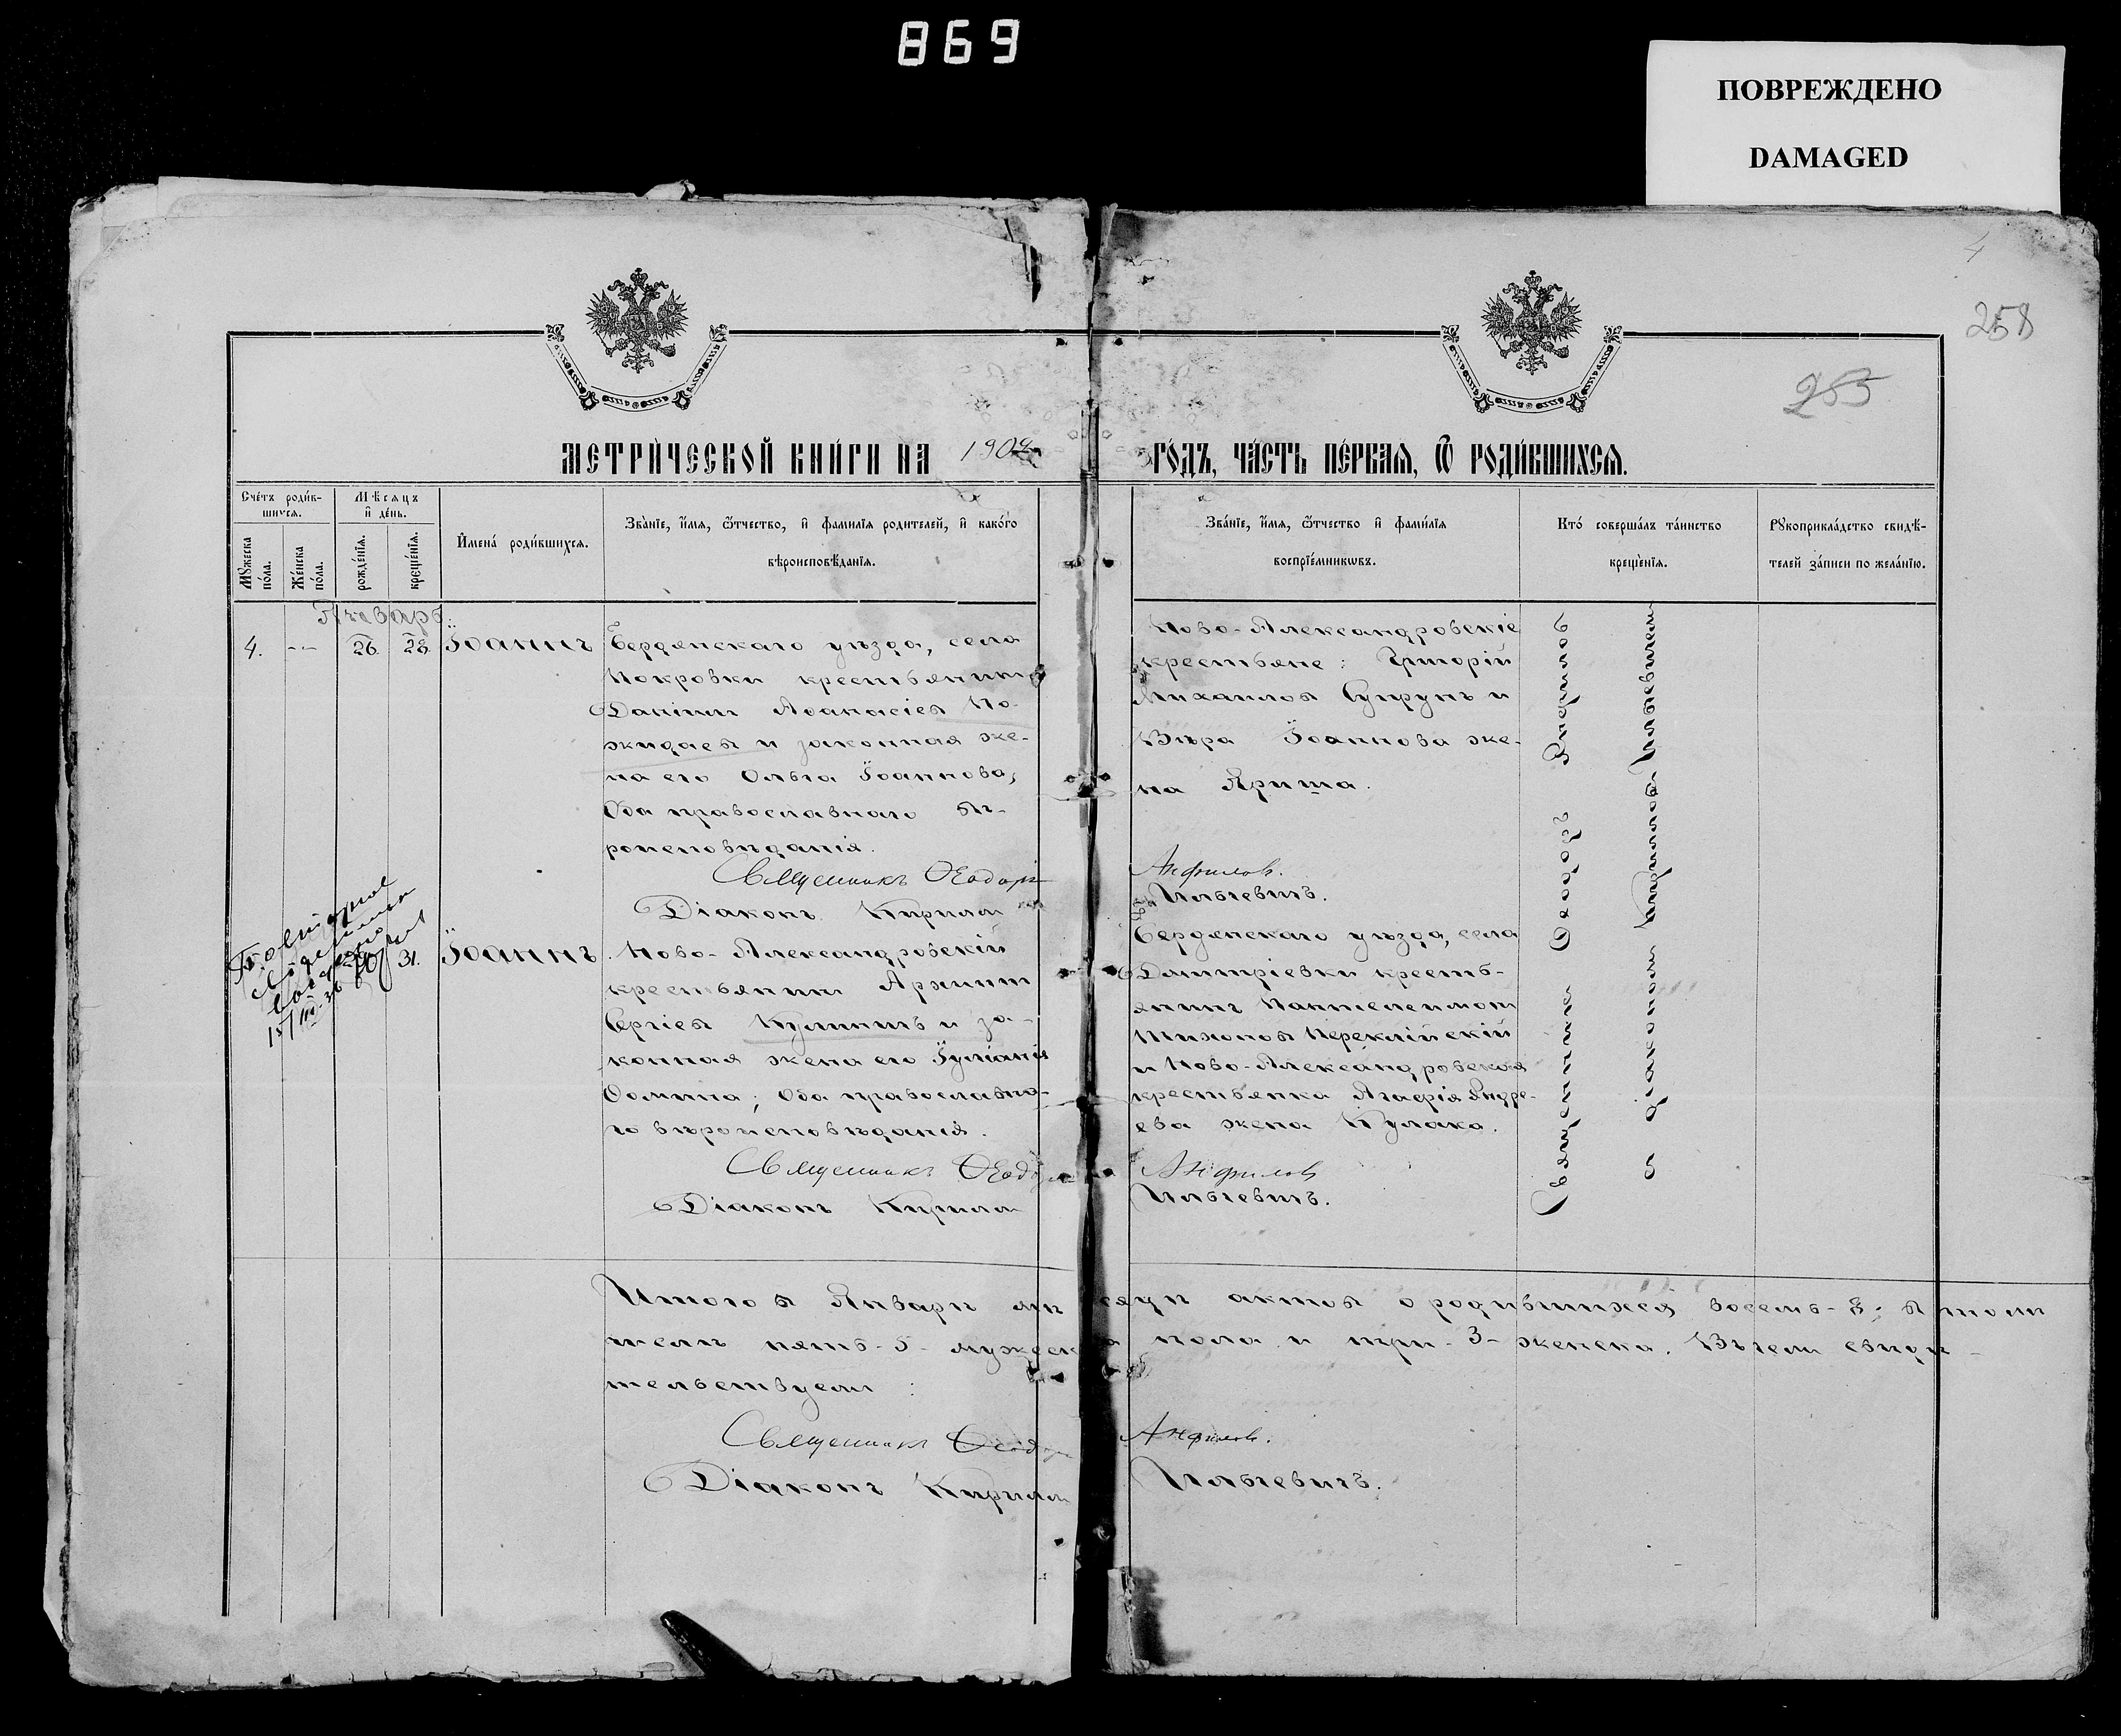 869
ПОВРЕЖДЕНО
DAMAGED
4
258
255
МЕТРИ́ЧЕСКОЙ КНИ́ГИ НА 1902
ГО́ДЪ, ЧА́СТЬ ПЕ́РВАЯ, Ѿ РОДИ́ВШИХСЯ.
Сче́тъ роди́в-
шихся.
Мꙋ́жеска по́ла.
Же́нска по́ла.
Мѣ́сяцъ
и҆ де́нь.
рожде́нїя.
креще́нїя.
И҆мена́ роди́вшихся.
Зва́нїе, и҆́мя, ѻ҆́тчество, и҆ фами́лїя родителей, и҆ како́го
вѣроисповѣ́данїя.
Зва́нїе, и҆́мя, ѻ҆́тчество и҆ фами́лїя
воспрїе́мникωвъ.
Кто́ соверша́лъ та́инство
креще́нїя.
Рꙋкоприкла́дство свидѣ́-
телей за́писи по жела́нїю.
Январь.
4.
26
28.
Іоаннъ
Бердянскаго уѣзда, села
Покровки крестьянинъ
Даніилъ Аѳанасіевъ По-
жидаевъ и законная же-
на его Ольга Іоаннова,
Оба православнаго вѣ-
роисповѣданія.
Священникъ Ѳеодоръ
Діаконъ Кириллъ
Ново-Александровскіе
крестьяне: Григорій
Михаиловъ Супрунъ и
Вѣра Іоаннова же-
на Яриша.
Анфиловъ.
Ильчевичъ.
Священникъ Ѳеодоръ Анфиловъ
съ діакономъ Кирилломъ Ильчевичемъ
Повторное
15/III-36
30
31.
Іоаннъ.
Ново-Александровскій
крестьянинъ
Сергіевъ Кулиничъ и за-
конная жена его Іуліанія
Ѳомина; Оба православна-
го вѣроисповѣданія.
Священникъ Ѳеодоръ
Діаконъ Кириллъ
Бердянскаго уѣзда, села
Дмитріевки кресть-
янинъ Пантелеимонъ
Тихоновъ
и Ново-Александровская
крестьянка Агафія Андре-
ева жена Кулака.
Анфиловъ
Ильчевичъ.
Итого въ Январѣ мѣсяцѣ актовъ о родившихся восемь-8; въ томъ
числѣ пять-5-мужеска пола и три-3-женска. Въ чемъ свидѣ-
тельствуемъ:
Священникъ Ѳеодоръ
Анфиловъ.
Діаконъ Кириллъ
Ильчевичъ.